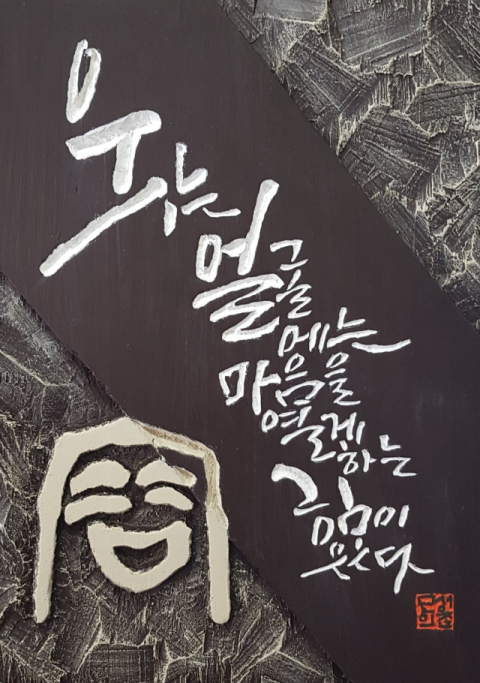 웃는
얼굴
에는
마음을
열게
하는
힘이
있다